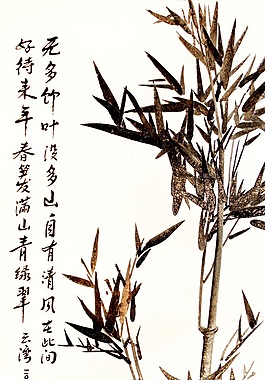 无多竹叶没多山自有清风在此间
好待来年春笋发满山青绿翠
云湾